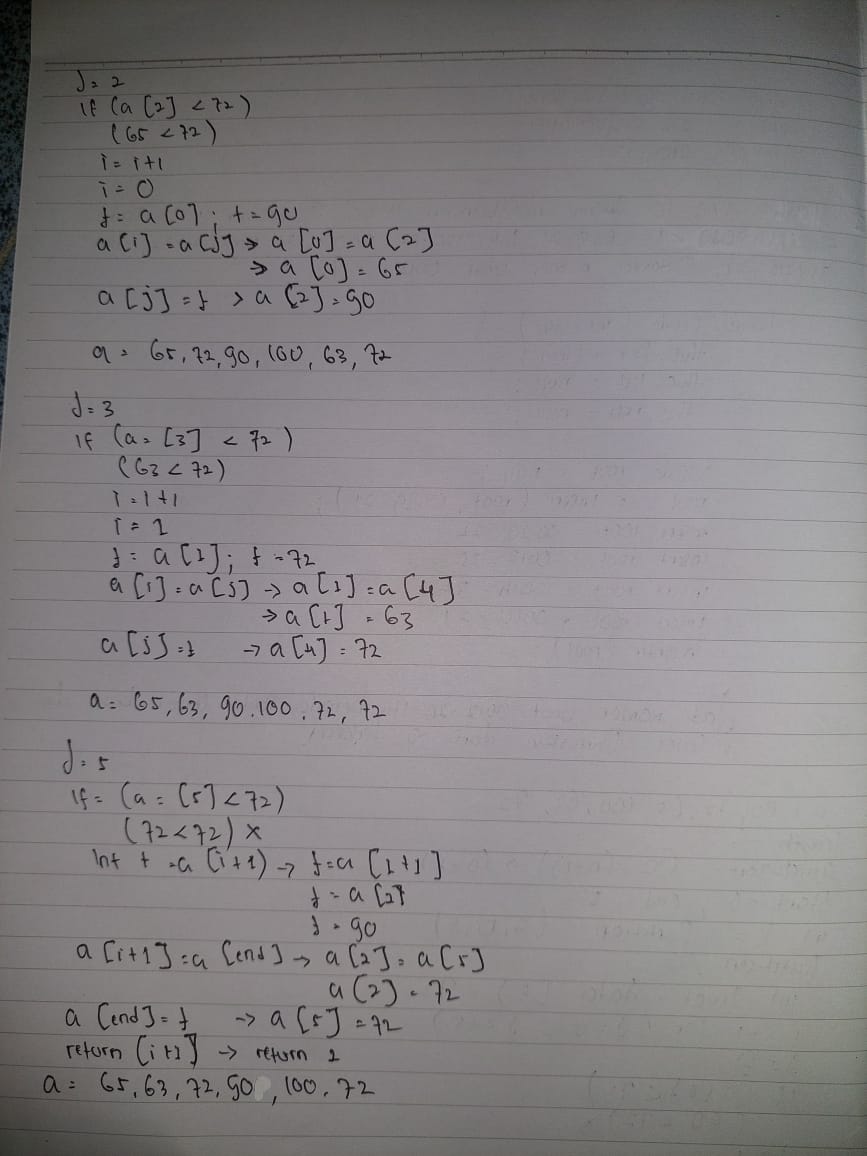 J = 2
if (a [2] < 72)
(65 < 72)
i = i+1
i = 0
t = a [0] ; t = 90
a [i] = a [j] → a [0] = a [2]
→ a [0] = 65
a [j] = t → a [2] = 90
a = 65, 72, 90, 100, 63, 72
J = 3
if (a = [3] < 72)
(63 < 72)
i = i+1
i = 1
t = a [1] ; t = 72
a [i] = a [j] → a [1] = a [4]
→ a [1] = 63
a [j] = t → a [4] = 72
a = 65, 63, 90, 100, 72, 72
J = 5
if = (a = [5] < 72)
(72 < 72) x
Int t = a [i+1) → t = a [1+1]
t = a [2]
t = 90
a [i+1] = a [end] → a [2] = a [5]
a [2] = 72
a [end] = t → a [5] = 72
return [i+1] → return 2
a = 65, 63, 72, 90, 100, 72